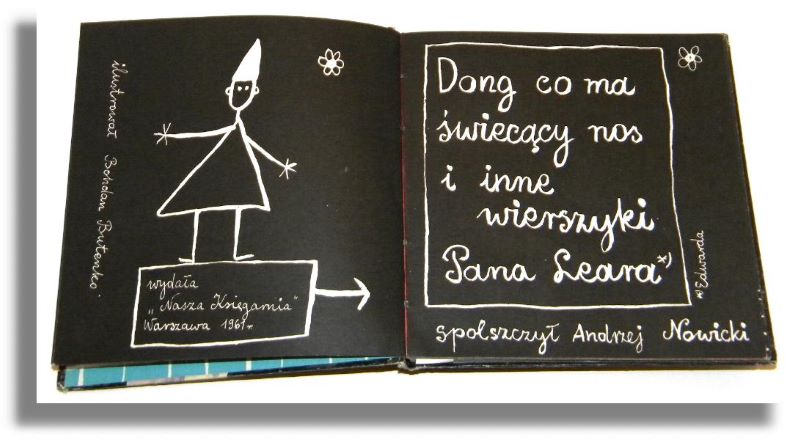 ilustrował Bohdan Butenko
wydała
„Nasza Księgarnia"
Warszawa 1961 r.
Dong co ma
świecący nos
i inne
wierszyki
Pana Leara *)
*) Edwarda
spolszczył Andrzej Nowicki